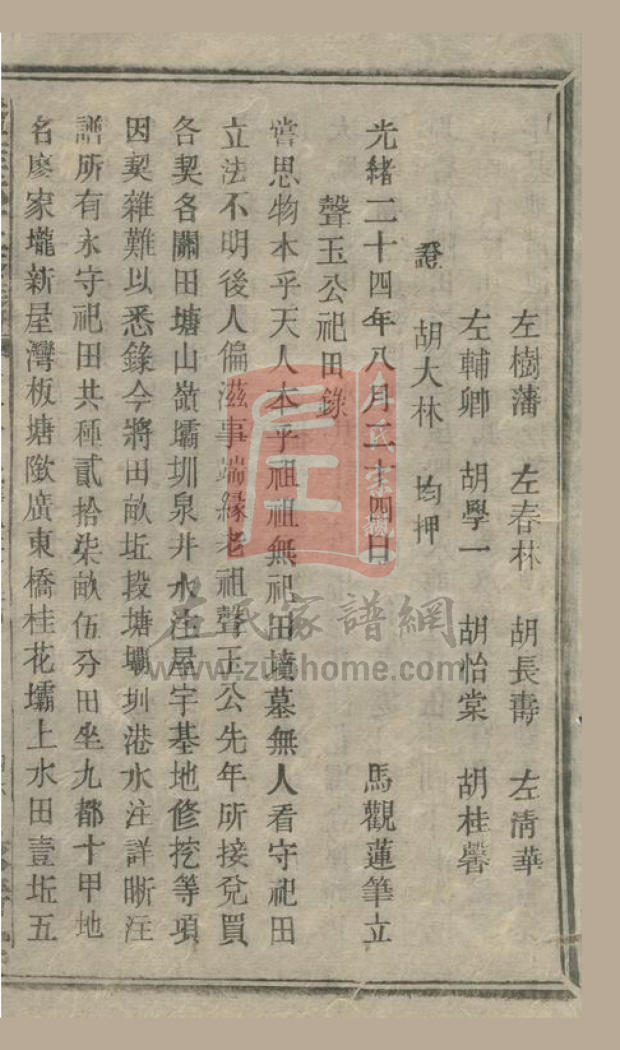 左樹藩　左春林　胡長壽　左清華
左輔卿　胡學一　胡怡棠　胡桂馨
證　胡大林　均押
光緒二十四年八月二十四日　馬觀蓮筆立
聲玉公祀田錄
嘗思物本乎天人本乎祖祖無祀田墳墓無人看守祀田
立法不明後人偏滋事端緣老祖聲玉公先年所接兌買
各契各關田塘山嶺壩圳泉井水注屋宇基地修挖等項
因契雜難以悉錄今將田畝坵段塘壩圳港水注詳晰注
譜所有永守祀田共種貳拾柒畝伍分田坐九都十甲地
名廖家壠新屋灣板塘墈廣東橋桂花壩上水田壹坵五
左氏家譜網
www.zuohome.com